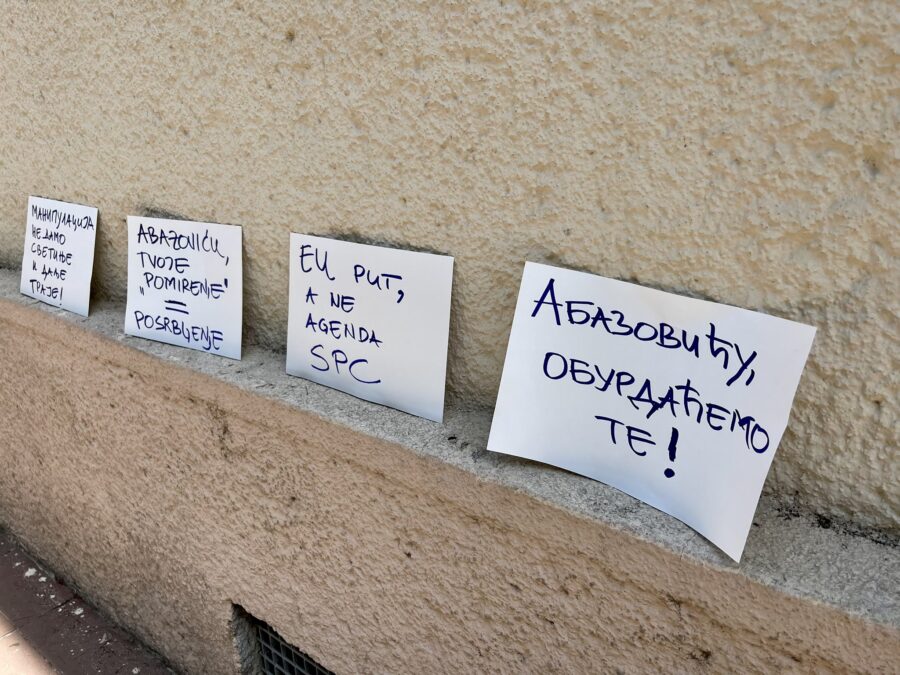 МАНИПУЛАЦИЈА
НЕДАМО
СВЕТИЊЕ
И ДАЉЕ
ТРАЈЕ!
ABAZOVIĆU,
TVOJE
„POMIRENJE"
=
POSRBLJENJE
EU PUT,
A NE
AGENDA
SPC
АБАЗОВИЋУ,
ОБУРДАЋЕМО
ТЕ!